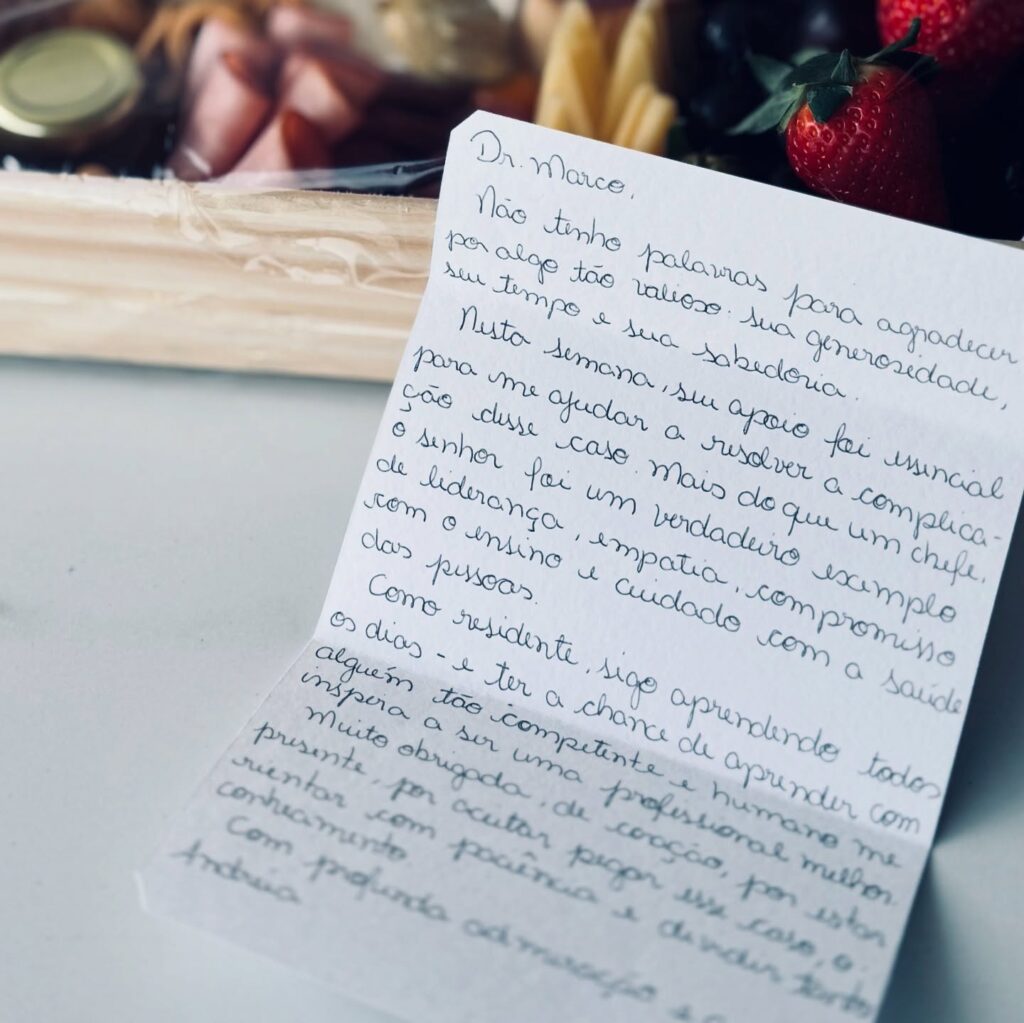 Dr. Marco,
Não tenho palavras para agradecer
por algo tão valioso: sua generosidade,
seu tempo e sua sabedoria.
Nesta semana, seu apoio foi essencial
para me ajudar a resolver a complica-
ção desse caso. Mais do que um chefe,
o senhor foi um verdadeiro exemplo
de liderança, empatia, compromisso
com o ensino e cuidado com a saúde
das pessoas.
Como residente, sigo aprendendo todos
os dias - e ter a chance de aprender com
alguém tão competente e humano me
inspira a ser uma profissional melhor.
Muito obrigada, de coração, por estar
presente, por aceitar pegar esse caso, o
rientar com paciência e dividir tanto
conhecimento
Com profunda admiração e